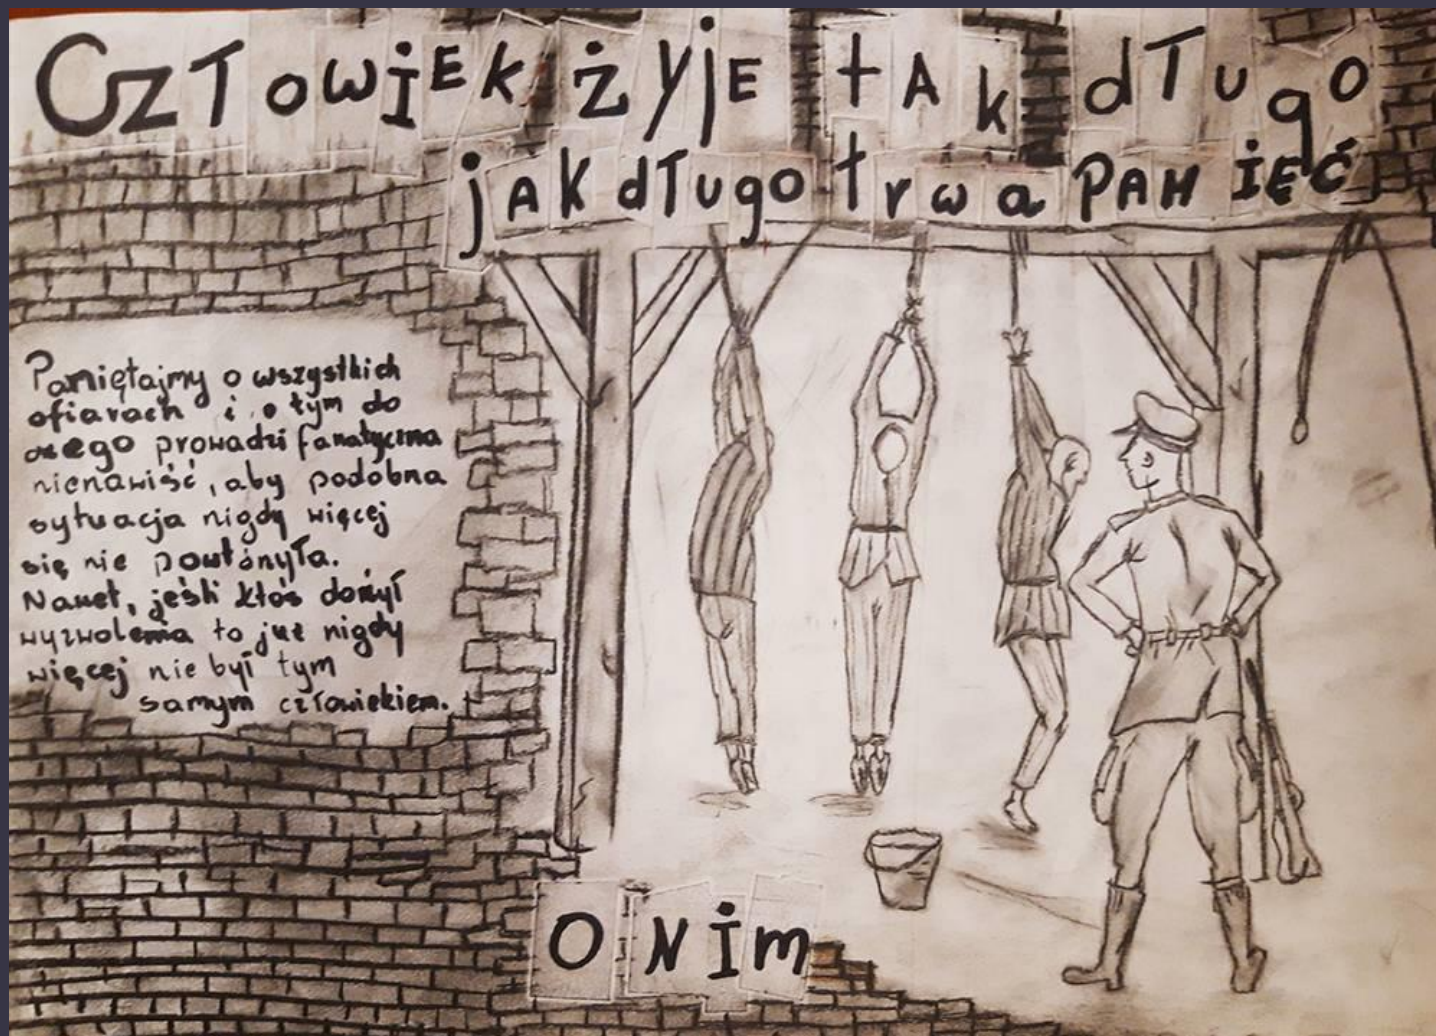 CzŁowiEk żyjE tAk dŁugo
jAK dŁugo trwa PAMIĘĆ
Pamiętajmy o wszystkich
ofiarach i o tym do
czego prowadzi fanatyczna
nienawiść, aby podobna
sytuacja nigdy więcej
się nie powtórzyła.
Nawet, jeśli ktoś dożył
wyzwolenia to już nigdy
więcej nie był tym
samym człowiekiem.
O NIm